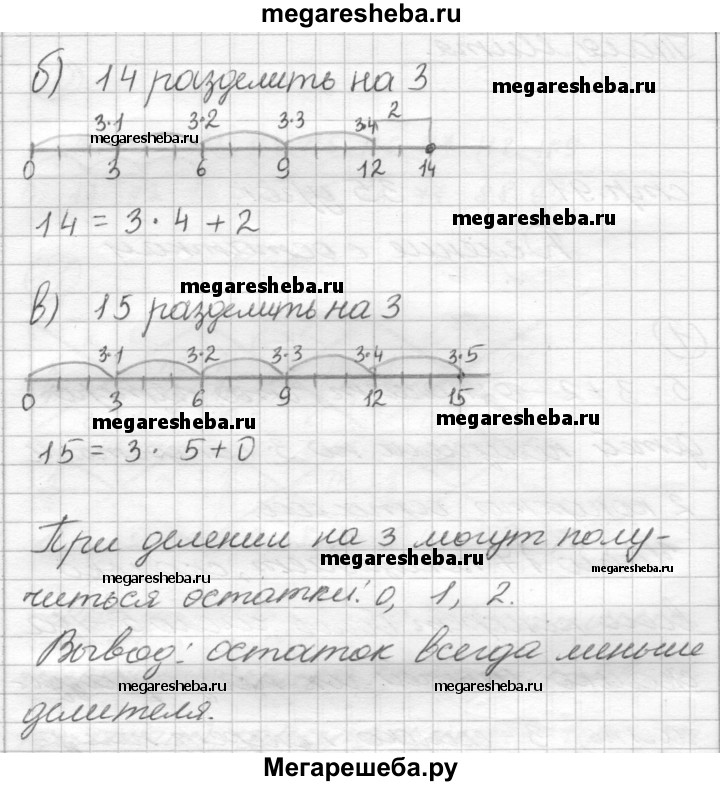 megaresheba.ru
б) 14 разделить на 3
megaresheba.ru
3·1 3·2 3·3 3·4 2
megaresheba.ru
0 3 6 9 12 14
14 = 3 · 4 + 2
megaresheba.ru
megaresheba.ru
в) 15 разделить на 3
3·1 3·2 3·3 3·4 3·5
0 3 6 9 12 15
megaresheba.ru megaresheba.ru
15 = 3 · 5 + 0
При делении на 3 могут полу-
megaresheba.ru
megaresheba.ru megaresheba.ru
читься остатки: 0, 1, 2.
Вывод: остаток всегда меньше
megaresheba.ru megaresheba.ru
делителя.
Мегарешеба.ру